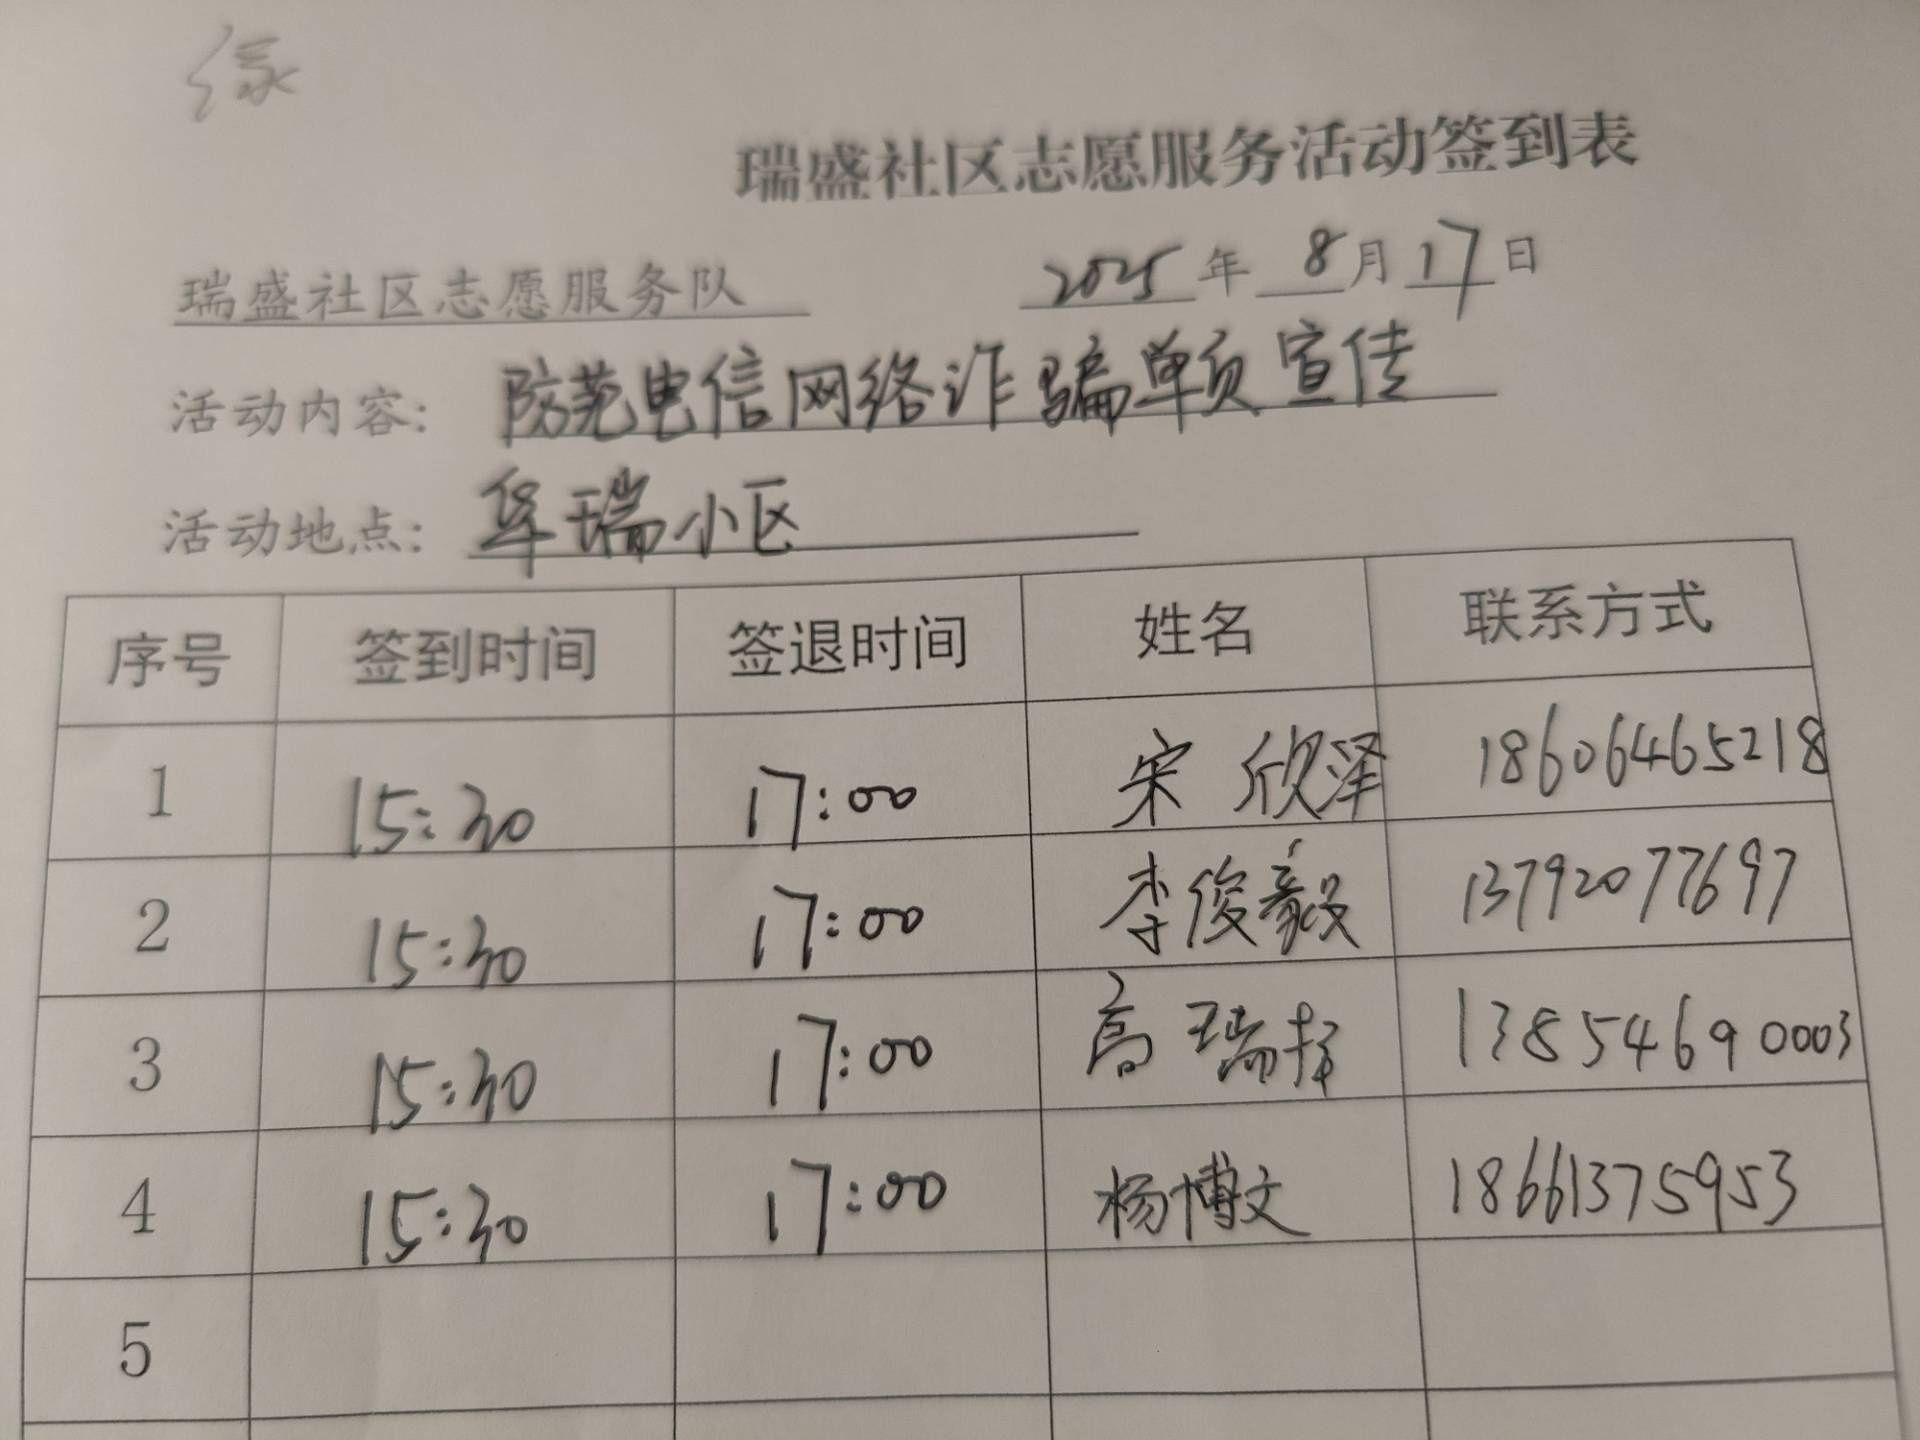 绿
瑞盛社区志愿服务活动签到表
瑞盛社区志愿服务队 2025年 8月17日
活动内容: 防范电信网络诈骗单页宣传
活动地点: 华瑞小区
序号 签到时间 签退时间 姓名 联系方式
1 15:30 17:00 宋欣泽 18606465218
2 15:30 17:00 李俊毅 13792077697
3 15:30 17:00 高瑞择 13854690003
4 15:30 17:00 杨博文 18661375953
5